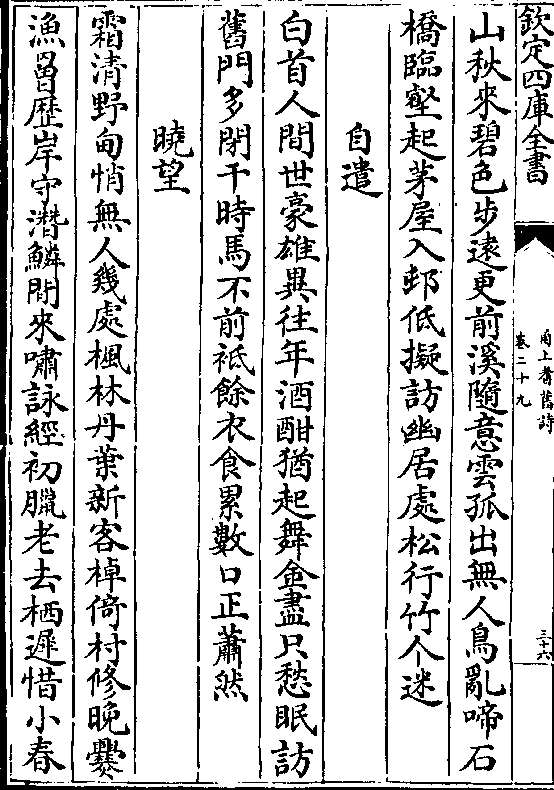 欽定四庫全書
甬上耆舊詩
卷二十九
三十六
山秋來碧色步遠更前溪隨意雲孤出無人鳥亂啼石
橋臨壑起茅屋入邨低擬訪幽居處松行竹个迷
自遣
白首人間世豪雄異往年酒酣猶起舞金盡只愁眠訪
舊門多閉干時馬不前祗餘衣食累數口正蕭然
曉望
霜清野甸悄無人幾處楓林丹葉新客棹倚村修晚爨
漁罾歷岸守潛鱗閒來嘯詠經初臘老去栖遲惜小春